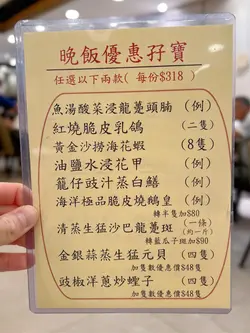 晚飯優惠孖寶
任選以下兩款(每份$318)
魚湯酸菜浸龍躉頭腩 (例)
紅燒脆皮乳鴿 (二隻)
黃金沙撈海花蝦 (8隻)
油鹽水浸花甲 (例)
籠仔豉汁蒸白鱔 (例)
海洋極品脆皮燒鵝皇 (例)
轉半隻加$80
清蒸生猛沙巴龍躉斑 (一條)
(約一斤)
轉藍瓜子斑加$90
金銀蒜蒸生猛元貝 (四隻)
加隻數優惠價$48隻
豉椒洋蔥炒蟶子 (四隻)
加隻數優惠價$48隻